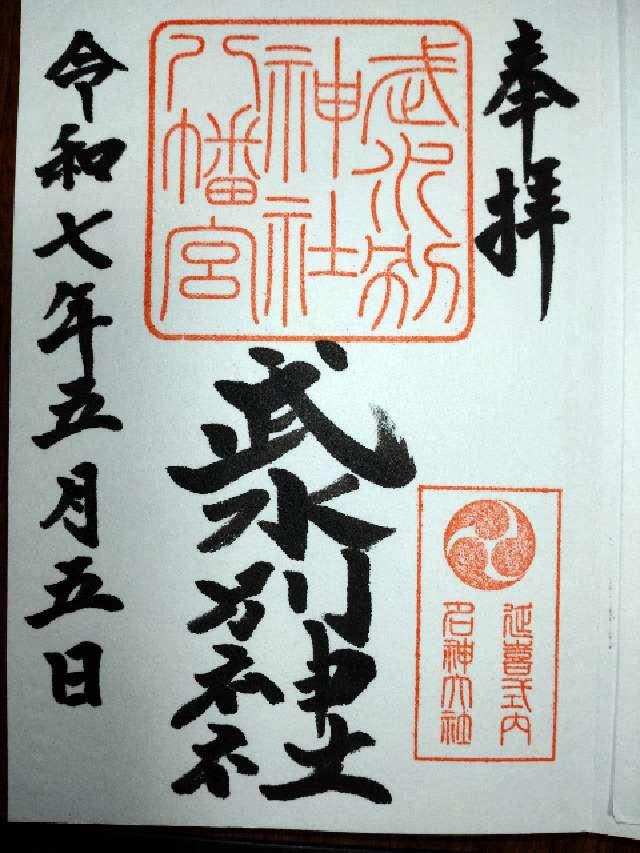 奉拝
武水別
神社
八幡宮
武水別神社
延喜式内
名神大社
令和七年五月五日